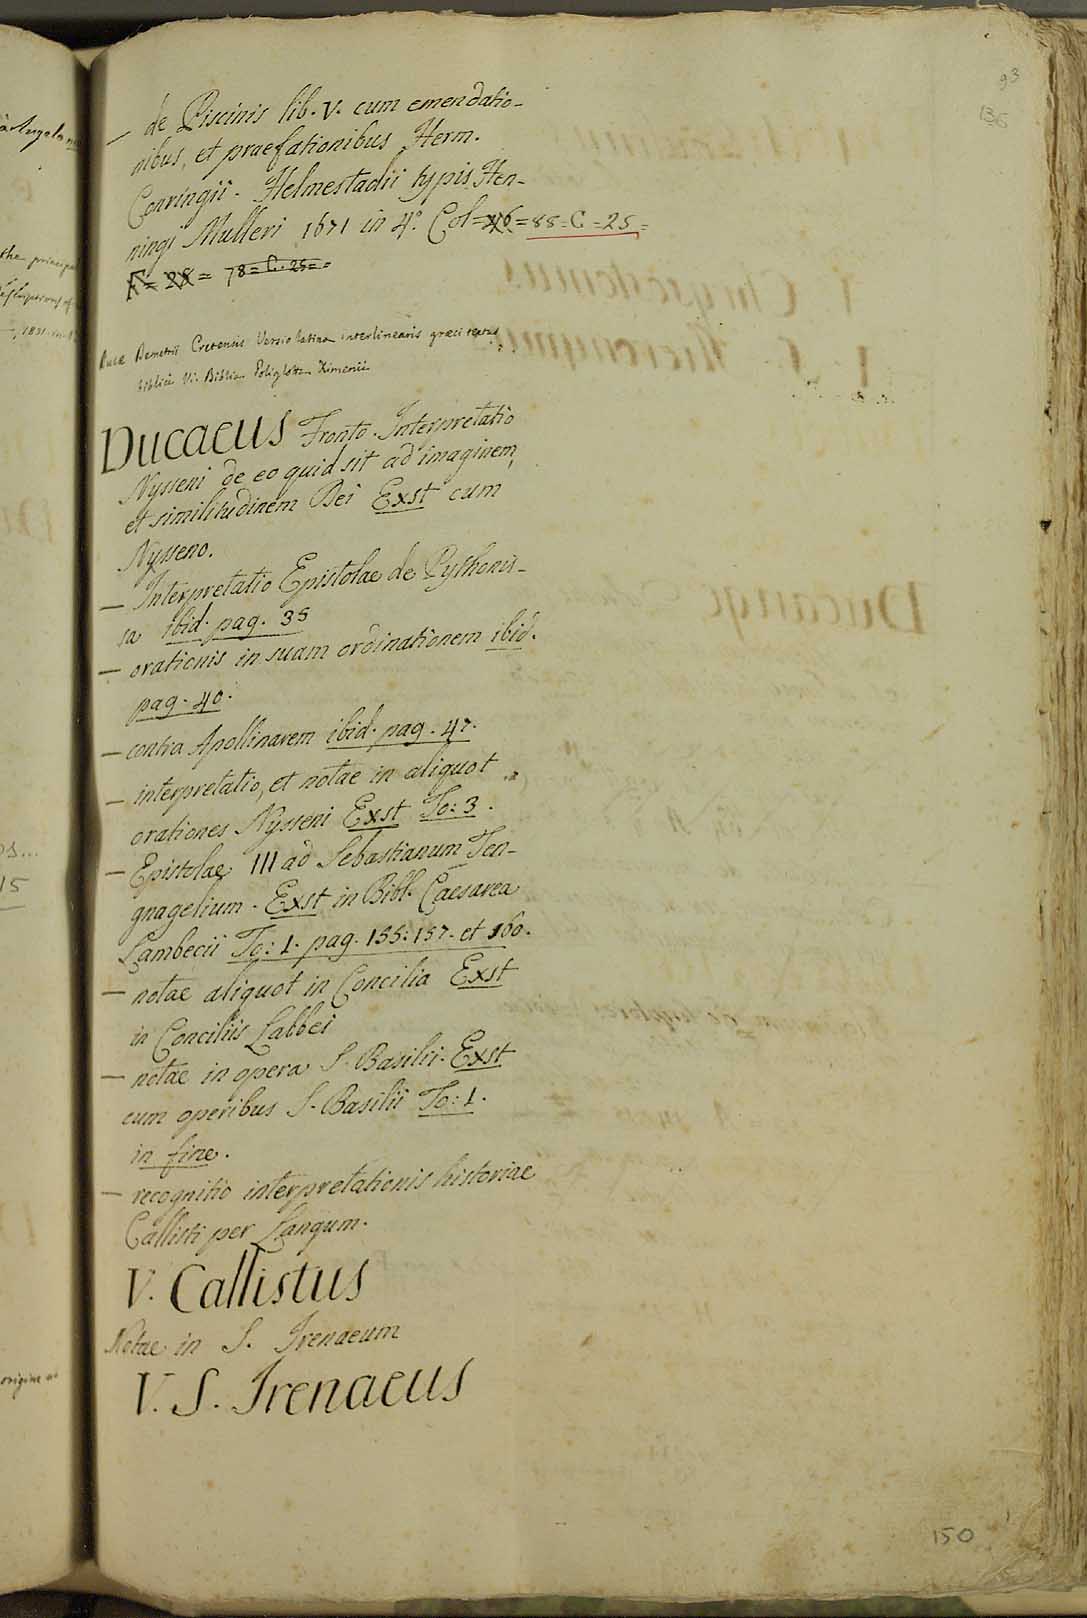 93
136
— de Piscinis lib. V. cum emendatio-
nibus, et praefationibus Herm.
Conringii. Helmestadii typis Hen-
ningi Mulleri 1671 in 4.° Col = 46 = 88 = C = 25 =
F = 28 = 78 = C. 25 =
Ducae Demetrii Cretensis Versio latina interlinearis graeci textus
biblici Vi. Biblia Poliglotta Ximenii
Ducaeus Fronto. Interpretatio
Nysseni de eo quid sit ad imaginem,
et similitudinem Dei Exst cum
Nysseno.
— Interpretatio Epistolae de Pythonis-
sa ibid. pag. 35
— orationis in suam ordinationem ibid.
pag. 40.
— contra Apollinarem ibid. pag. 47.
— interpretatio, et notae in aliquot
orationes Nysseni Exst To: 3.
— Epistolae III ad Sebastianum Ten-
gnagelium. Exst in Bibl. Caesarea
Lambecii To: 1. pag. 155: 157. et 160.
— notae aliquot in Concilia Exst
in Conciliis Labbei
— notae in opera S. Basilii. Exst
cum operibus S. Basilii To: 1.
in fine.
— recognitio interpretationis historiae
Callisti per Langum.
V. Callistus
Notae in S. Irenaeum
V. S. Irenaeus
150